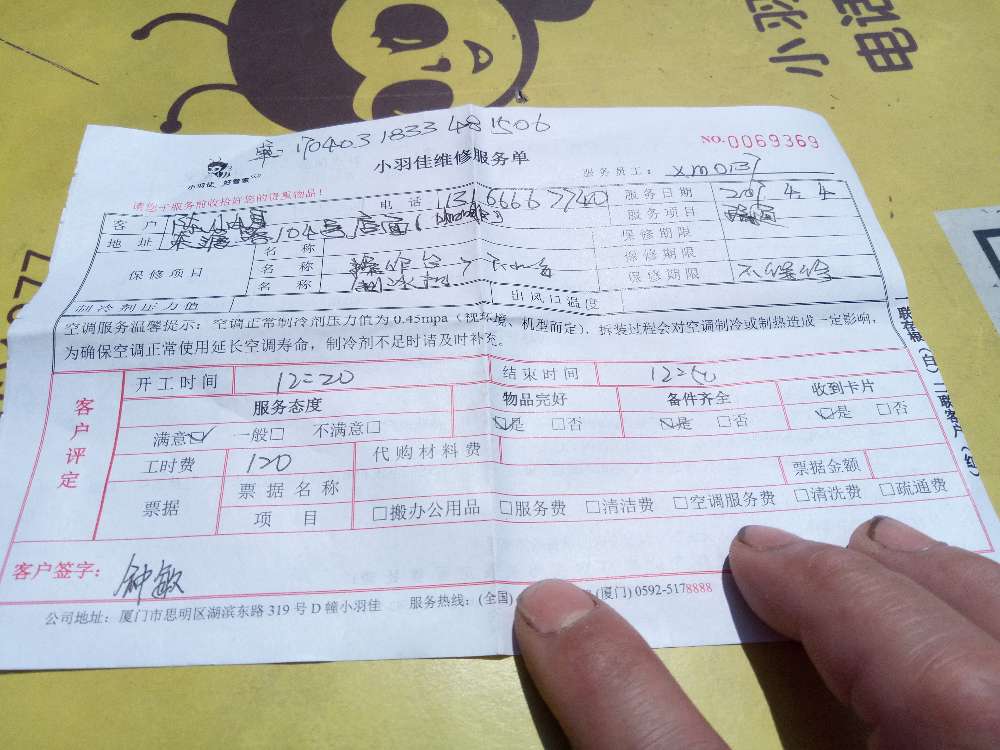 小羽佳
电话
单:1704031833481506
小羽佳维修服务单
NO.0069369
小羽佳 好管家
服务员工: XM0137
请您于服务前收拾好您的贵重物品!
客户 电话 服务日期 4.4
地址 104号 服务项目 疏通
保修项目 名称 保修期限
名称 操作台 下水 保修期限
名称 制冰机 保修期限 不保修
制冷剂压力值 出风口温度
空调服务温馨提示:空调正常制冷剂压力值为0.45mpa(视环境、机型而定)、拆装过程会对空调制冷或制热造成一定影响,
为确保空调正常使用延长空调寿命,制冷剂不足时请及时补充。
一联存根(白) 二联客户(红)
客户评定
开工时间 12=20 结束时间
服务态度 物品完好 备件齐全 收到卡片
满意☑ 一般□ 不满意□ ☑是 □否 ☑是 □否 ☑是 □否
工时费 120 代购材料费
票据 票据名称 票据金额
项目 □搬办公用品 □服务费 □清洁费 □空调服务费 □清洗费 □疏通费
客户签字: 钟敏
公司地址:厦门市思明区湖滨东路319号D幢小羽佳 服务热线:(全国) (厦门)0592-5178888